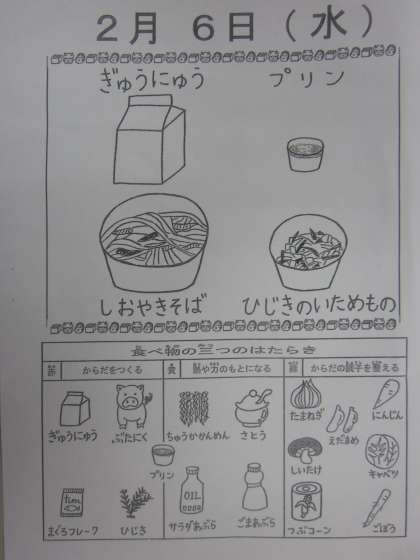 ２月 ６日（水）
ぎゅうにゅう プリン
しおやきそば ひじきのいためもの
食べ物の三つのはたらき
赤 からだをつくる 黄 熱や力のもとになる 緑 からだの調子を整える
ぎゅうにゅう ぶたにく ちゅうかかんめん さとう たまねぎ えだまめ にんじん
プリン しいたけ キャベツ
まぐろフレーク ひじき サラダあぶら ごまあぶら つぶコーン ごぼう
OIL